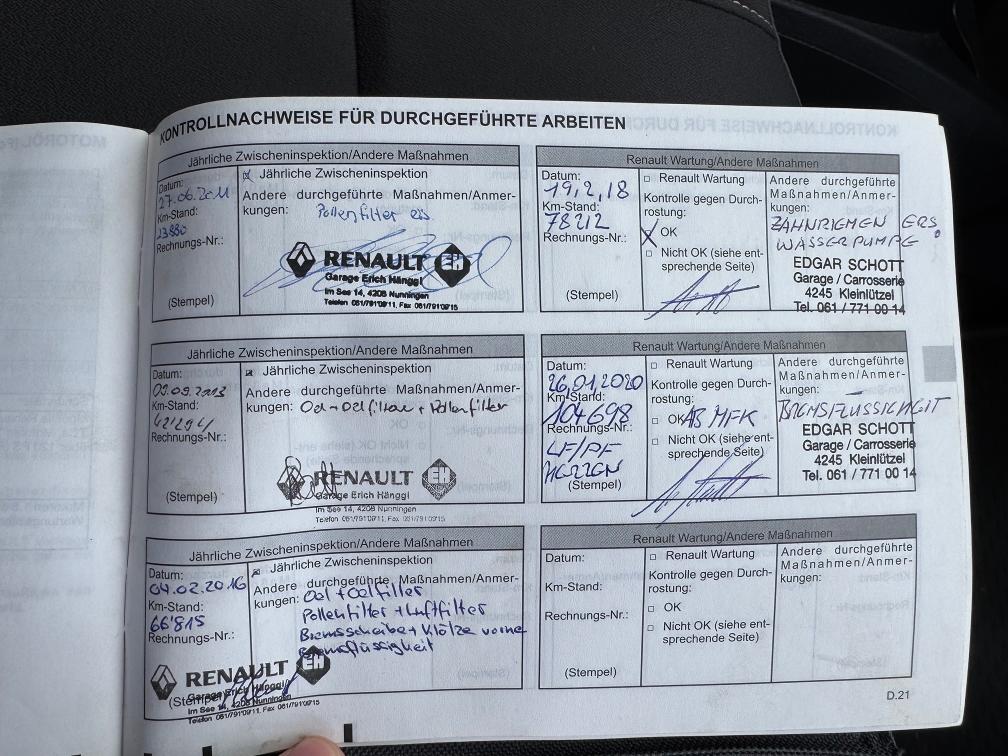 KONTROLLNACHWEISE FÜR DURCHGEFÜHRTE ARBEITEN
Jährliche Zwischeninspektion/Andere Maßnahmen
Datum:
27.06.2011
Km-Stand:
23880
Rechnungs-Nr.:
(Stempel)
Jährliche Zwischeninspektion
Andere durchgeführte Maßnahmen/Anmer-
kungen: Pollenfilter ers
RENAULT EH
Garage Erich Hänggi
Im See 14, 4208 Nunningen
Telefon 061/791'09'11, Fax 061/791'09'15
Jährliche Zwischeninspektion/Andere Maßnahmen
Datum:
09.09.2013
Km-Stand:
Rechnungs-Nr.:
(Stempel)
Jährliche Zwischeninspektion
Andere durchgeführte Maßnahmen/Anmer-
kungen: Oel + Oelfilter + Pollenfilter
RENAULT EH
Garage Erich Hänggi
Im See 14, 4208 Nunningen
Telefon 061/791'09'11, Fax 061/791'09'15
Jährliche Zwischeninspektion/Andere Maßnahmen
Datum:
04.02.2016
Km-Stand:
66'815
Rechnungs-Nr.:
(Stempel)
Jährliche Zwischeninspektion
Andere durchgeführte Maßnahmen/Anmer-
kungen: Oel + Oelfilter
Pollenfilter + Luftfilter
Bremsscheibe + Klötze vorne
Bremsflüssigkeit
RENAULT EH
Garage Erich Hänggi
Im See 14, 4208 Nunningen
Telefon 061/791'09'11, Fax 061/791'09'15
Renault Wartung/Andere Maßnahmen
Datum:
19,2,18
Km-Stand:
78212
Rechnungs-Nr.:
(Stempel)
Renault Wartung
Kontrolle gegen Durch-
rostung:
OK
Nicht OK (siehe ent-
sprechende Seite)
Andere durchgeführte
Maßnahmen/Anmer-
kungen:
ZAHNRIEMEN ERS.
WASSERPUMPE
EDGAR SCHOTT
Garage / Carrosserie
4245 Kleinlützel
Tel. 061 / 771 00 14
Renault Wartung/Andere Maßnahmen
Datum:
26,01,2020
Km-Stand:
104698
Rechnungs-Nr.:
LF/PF
KERZEN
(Stempel)
Renault Wartung
Kontrolle gegen Durch-
rostung:
OK AB MFK
Nicht OK (siehe ent-
sprechende Seite)
Andere durchgeführte
Maßnahmen/Anmer-
kungen:
BREMSFLÜSSIGKEIT
EDGAR SCHOTT
Garage / Carrosserie
4245 Kleinlützel
Tel. 061 / 771 00 14
Renault Wartung/Andere Maßnahmen
Datum:
Km-Stand:
Rechnungs-Nr.:
(Stempel)
Renault Wartung
Kontrolle gegen Durch-
rostung:
OK
Nicht OK (siehe ent-
sprechende Seite)
Andere durchgeführte
Maßnahmen/Anmer-
kungen:
D.21